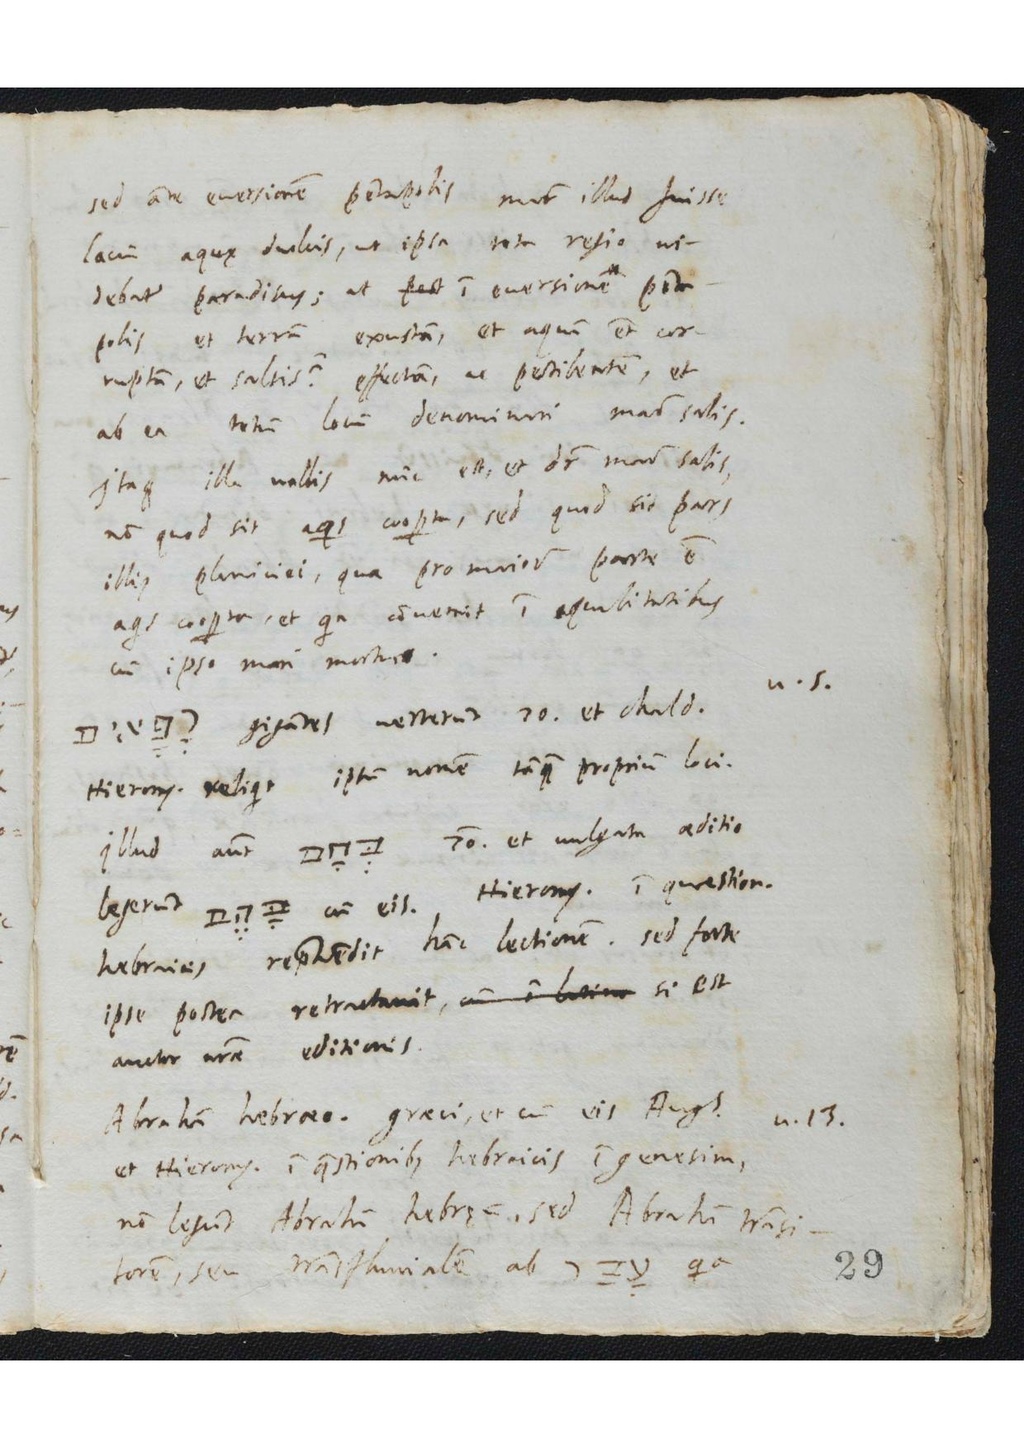 sed āte euersionē pētapolis mar̄ illud fuisse
lacū aquę dulcis, ut ipsa tota regio ui-
debat᷑ paradisus; at post ī euersionē pēta-
polis et terrā exustā, et aquā ēt cor-
ruptā, et salsis.ā effectā, ac pestilentē, et
ab ea totū locū denominari mar̄ salis.
Itaq illa uallis nūc est, et dr̄ mar̄ salis,
nō quod sit aqis coopta, sed quod sit pars
illius planiciei, qua pro maiorī parte ē
aqis coopta, et qa cōuenit ī aqualitatibus
cū ipso mari mortuo.
רְפָאִים gigātes uerterunt 70. et chald. u. 5.
Hierony. reliqit ipsū nomē tāqā propriū loci.
Illud aūt בְּהָם 70. et uulgata æditio
legerūt בָּהֶם cū eis. Hierony. ī question.
hebraicis rephēdit hāc lectionē. sed forte
ipse postea retractauit, si est
auctor nr̄æ editionis.
Abrahā hebræo. græci, et cū eis Aug.s u. 13.
et Hierony. ī qæstionibꝫ hebraicis ī genesim,
nō legūt Abrahā hebręū, sed Abrahā trāsi-
torē, seu trāsfluuialē ab עֵבֶר qa
29